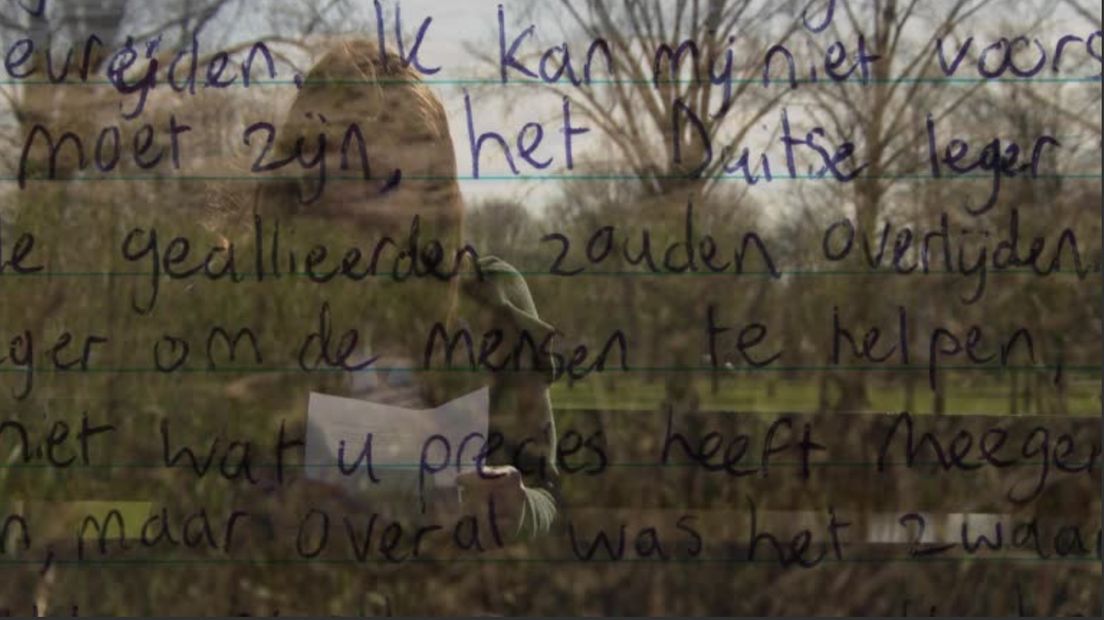 evreijden. Ik kan mij niet voors
moet zijn, het Duitse leger
geallieerden zouden overlijden.
ger om de mensen te helpen,
niet wat u precies heeft meege
n, maar overal was het zwaa